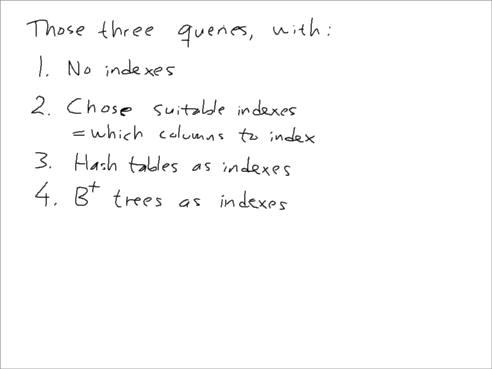 Those three queries, with:
1. No indexes
2. Chose suitable indexes
= which columns to index
3. Hash tables as indexes
4. B+ trees as indexes